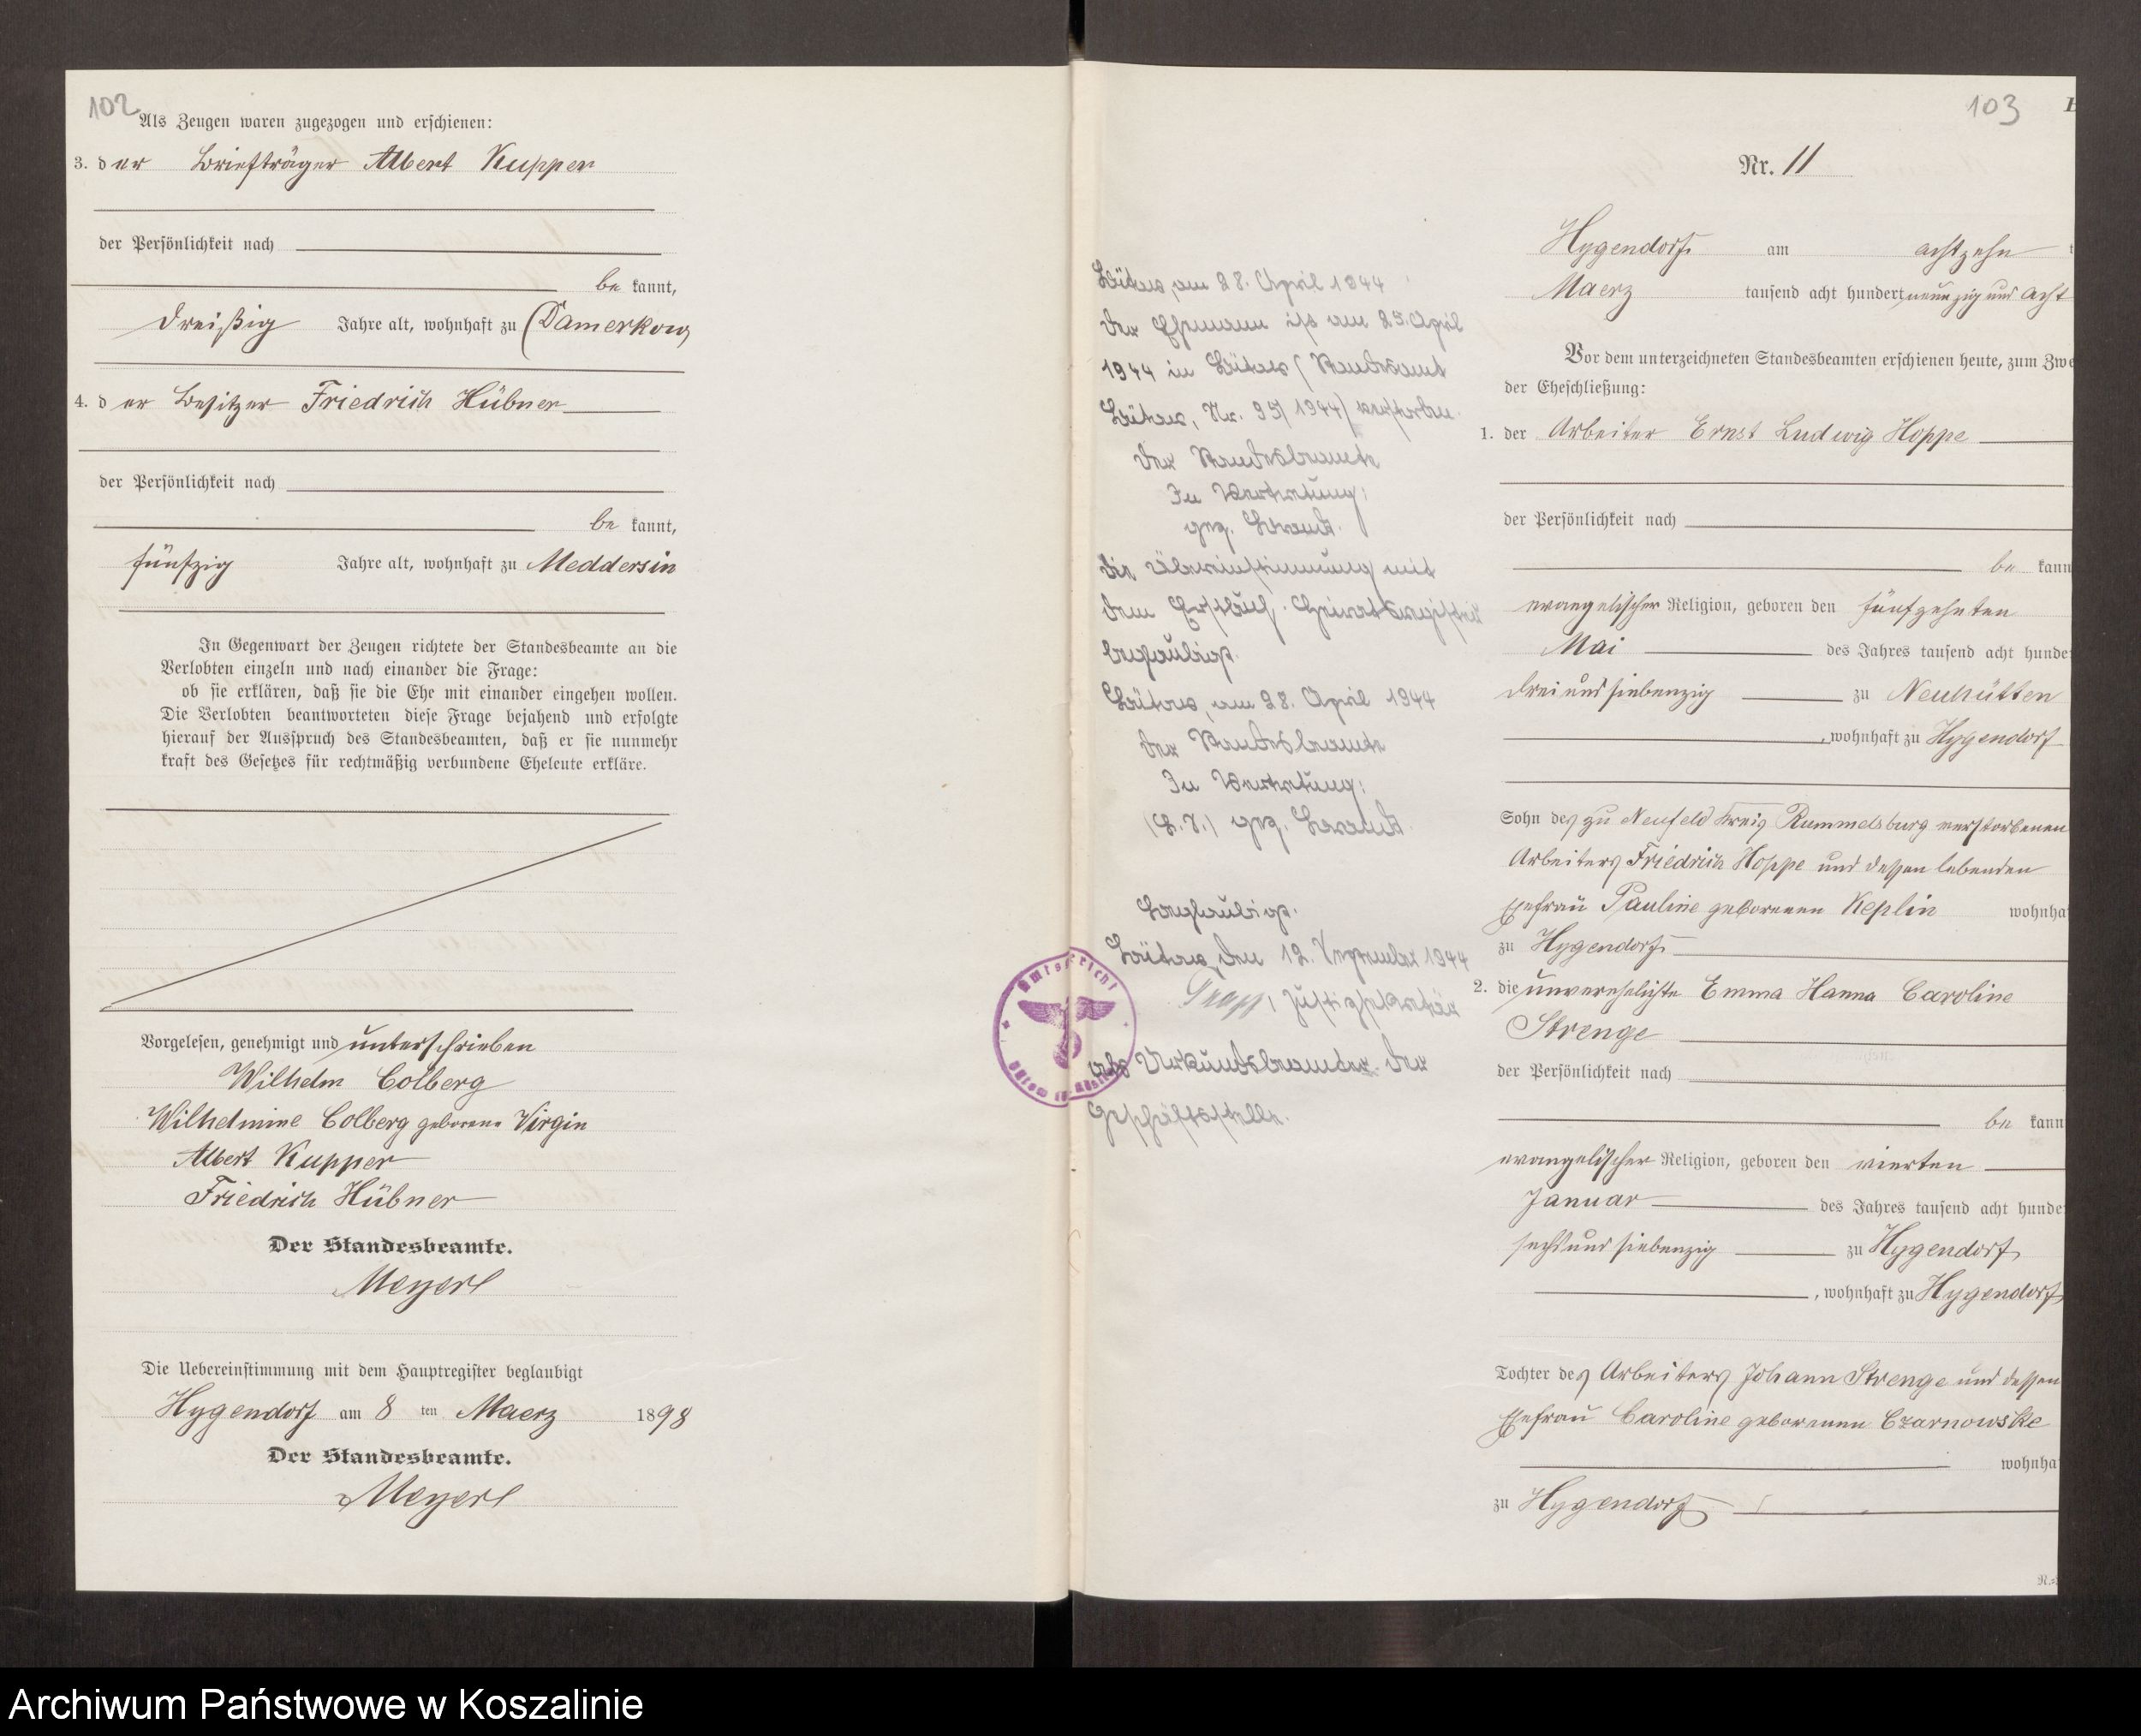 102
Als Zeugen waren zugezogen und erschienen:
3. der Briefträger Albert Kupper
der Persönlichkeit nach
be kannt,
dreißig Jahre alt, wohnhaft zu Damerkow
4. der Besitzer Friedrich Hübner
der Persönlichkeit nach
be kannt,
fünfzig Jahre alt, wohnhaft zu Meddersin
In Gegenwart der Zeugen richtete der Standesbeamte an die
Verlobten einzeln und nach einander die Frage:
ob sie erklären, daß sie die Ehe mit einander eingehen wollen.
Die Verlobten beantworteten diese Frage bejahend und erfolgte
hierauf der Ausspruch des Standesbeamten, daß er sie nunmehr
kraft des Gesetzes für rechtmäßig verbundene Eheleute erkläre.
Vorgelesen, genehmigt und unterschrieben
Wilhelm Colberg
Wilhelmine Colberg geborene Virgin
Albert Kupper
Friedrich Hübner
Der Standesbeamte.
Meyerl
Die Uebereinstimmung mit dem Hauptregister beglaubigt
Hygendorf am 8 ten Maerz 1898
Der Standesbeamte.
Meyerl
Bütow, am 28. April 1944
Der Ehemann ist am 25. April
1944 in Bütow (Standesamt
Bütow, Nr. 95/1944) verstorben.
Der Standesbeamte
In Vertretung:
gez. Brandt.
Die Übereinstimmung mit
dem Erstbuch-Heiratsregister
beglaubigt.
Bütow, am 28. April 1944
Der Standesbeamte
In Vertretung:
(L.S.) gez. Brandt
Beglaubigt.
Bütow, den 12. September 1944
Justizsekretär
als Urkundsbeamter der
Geschäftsstelle.
Amtsgericht
103
Nr. 11
Hygendorf am achtzehn
Maerz tausend acht hundert neunzig und acht
Vor dem unterzeichneten Standesbeamten erschienen heute, zum Zwe
der Eheschließung:
1. der Arbeiter Ernst Ludwig Hoppe
der Persönlichkeit nach
be kann
evangelischer Religion, geboren den fünfzehnten
Mai des Jahres tausend acht hunde
drei und siebenzig zu Neuhütten
, wohnhaft zu Hygendorf
Sohn des zu Neufeld Kreis Rummelsburg verstorbenen
Arbeiters Friedrich Hoppe und dessen lebenden
Ehefrau Pauline geborenen Keplin wohnha
zu Hygendorf
2. die unverehelichte Emma Hanna Caroline
Strenge
der Persönlichkeit nach
be kann
evangelischer Religion, geboren den vierten
Januar des Jahres tausend acht hunde
sechs und siebenzig zu Hygendorf
, wohnhaft zu Hygendorf
Tochter des Arbeiters Johann Strenge und dessen
Ehefrau Caroline geborenen Czarnowske
wohnha
zu Hygendorf
Archiwum Państwowe w Koszalinie